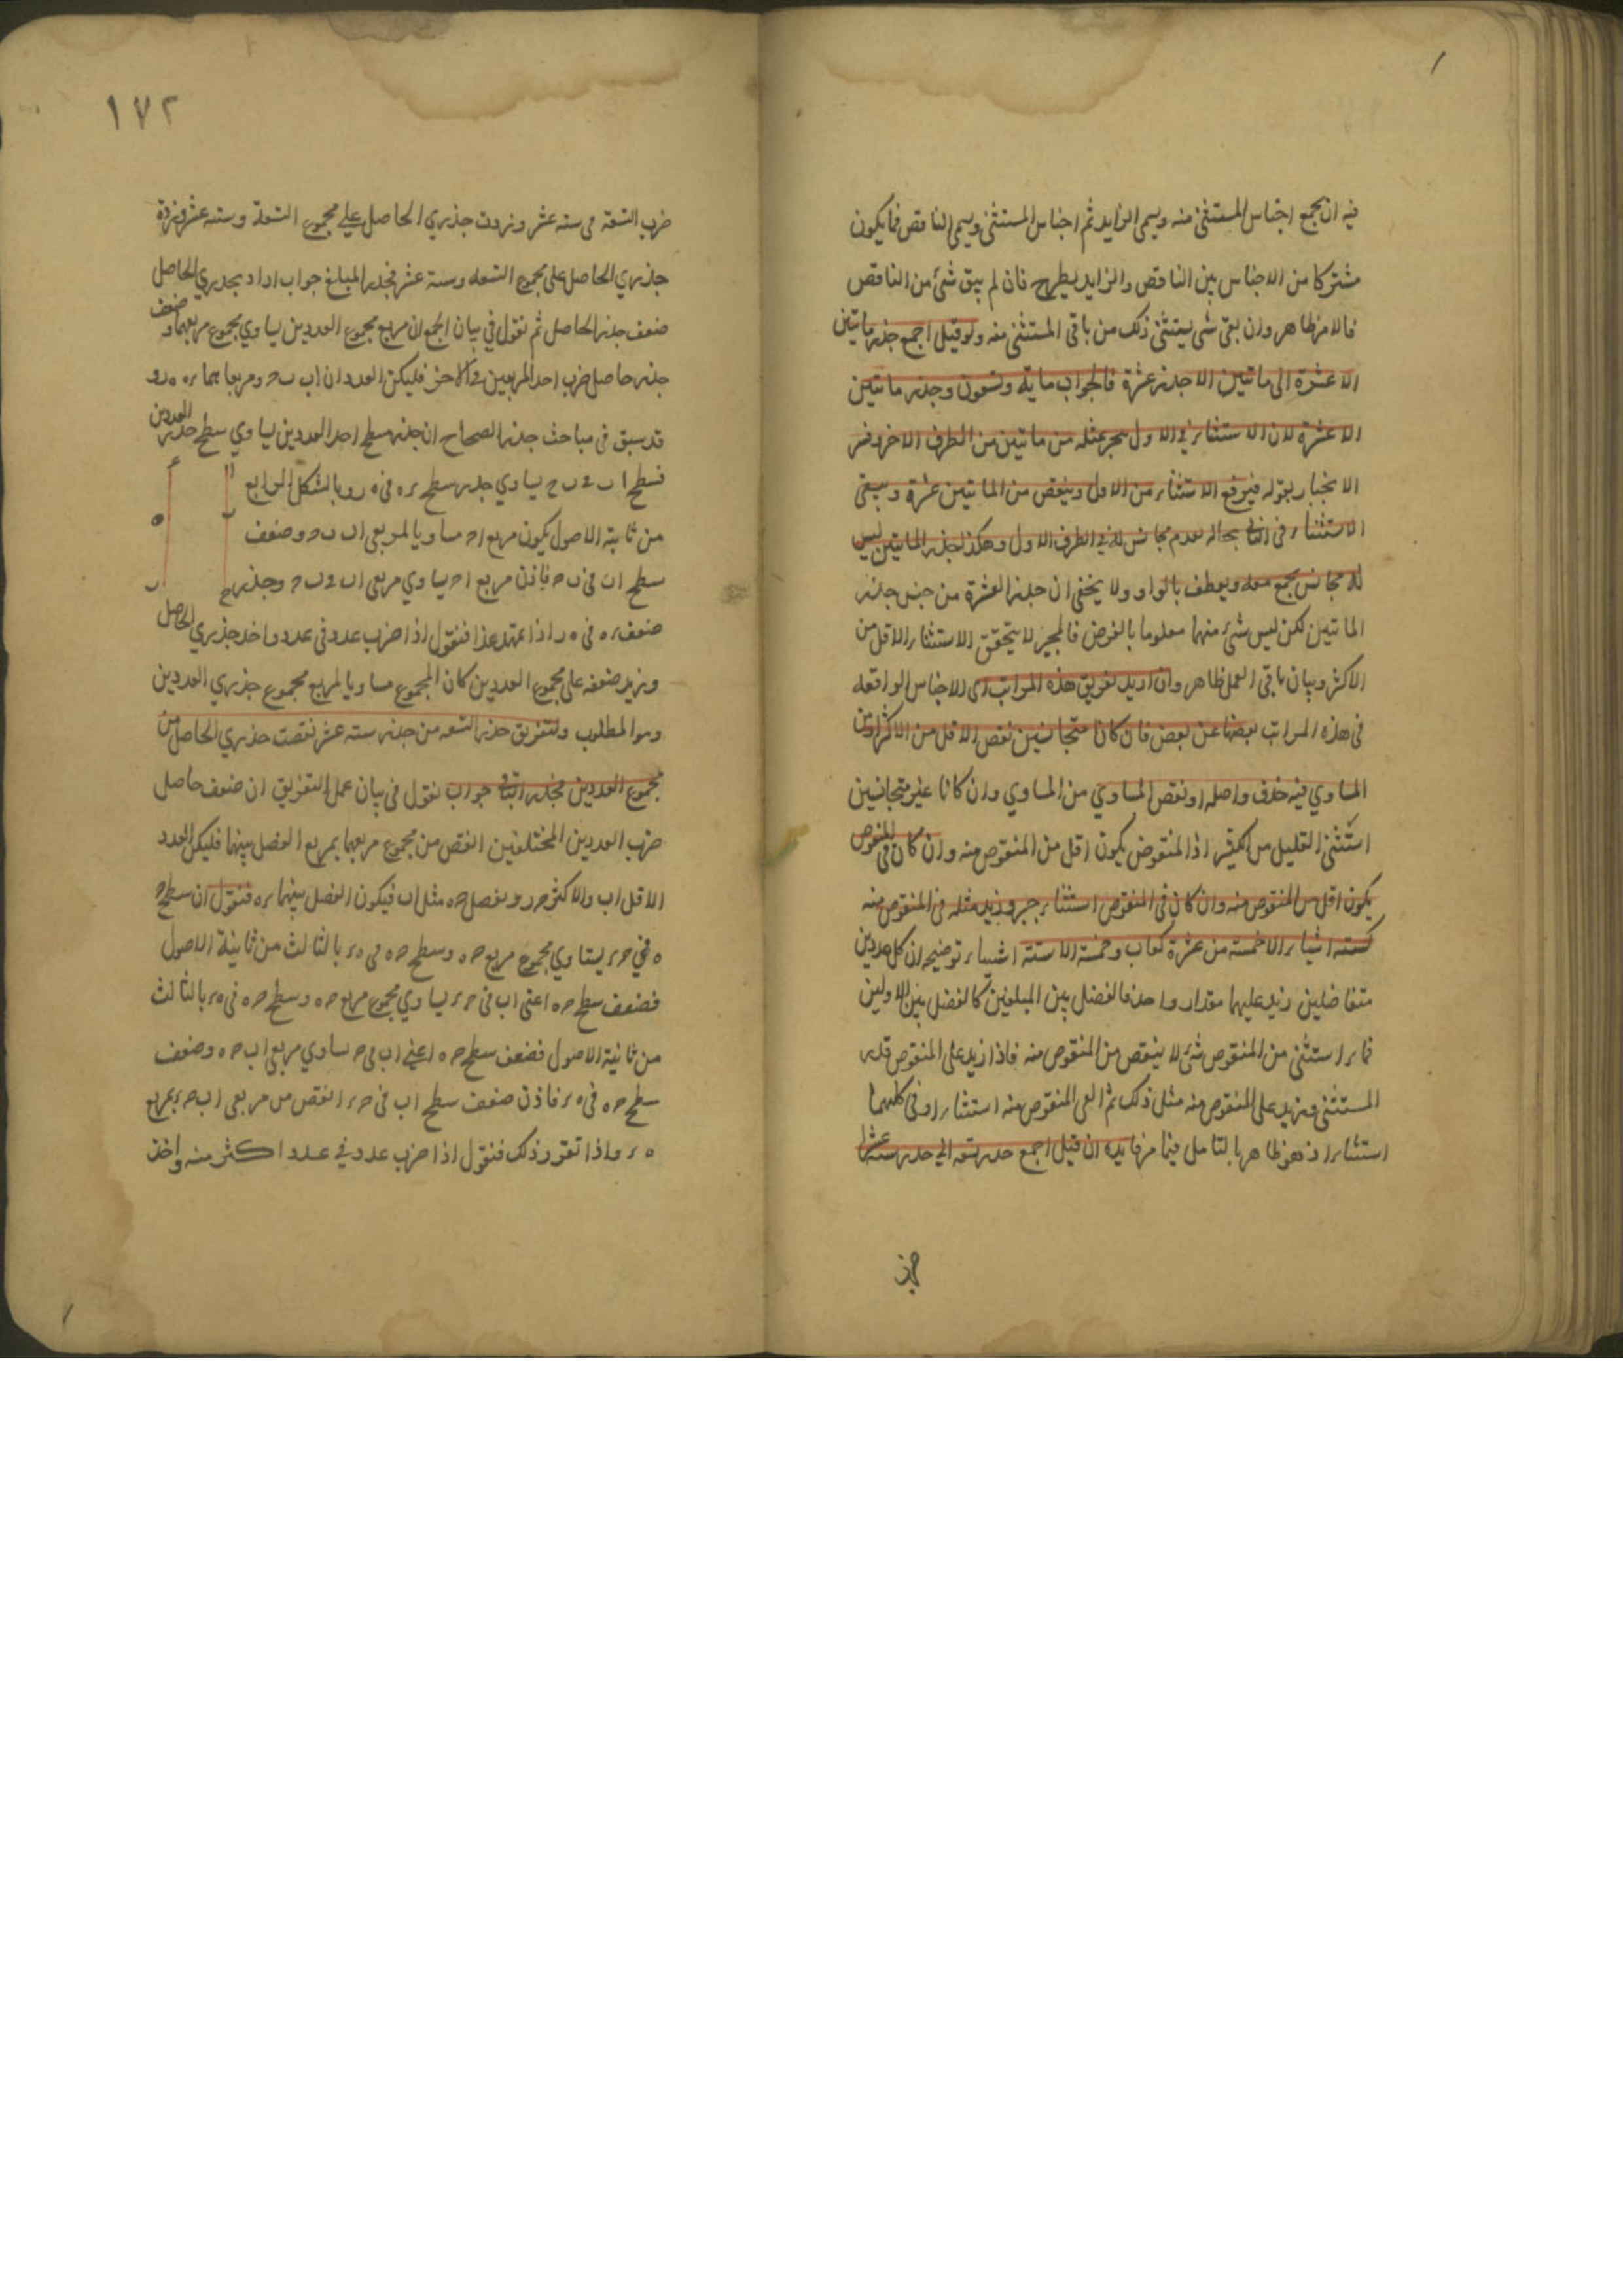 فيه ان يجمع اجناس المستثنى منه ويسمى الزايد ثم اجناس المستثنى ويسمى الناقص فما يكون
مشتركا من الاجناس بين الناقص والزايد يطرح فان لم يبق شئ من الناقص
فالامر ظاهر وان بقى شى يستثنى ذلك من باقى المستثنى منه ولو قيل اجمع جذر ماتين
الا عشرة الى ماتين الا جذر عشرة فالجواب ماية وتسعون وجذر ماتين
الا عشرة لان الاستثناء فى الاول يجبر بمثله من ماتين من الطرف الاخر وفسر
الانجبار بقوله فيرفع الاستثناء من الاول وينقص من الماتين عشرة ويبقى
الاستثناء فى الثانى بحاله لعدم مجانس له فى الطرف الاول وهكذا لجذر الماتين ليس
له مجانس يجمع معه ويعطف بالواو ولا يخفى ان جذر العشرة من جنس جذر
الماتين لكن ليس شئ منهما معلوما بالفرض فالمجير لا يتحقق الاستثناء الاقل من
الاكثر وبيان باقى العمل ظاهر وان اريد تفريق هذه المراتب اى الاجناس الواقعة
فى هذه المراتب بعضها عن بعض فان كانا متجانسين نقص الاقل من الاكثر او من
المساوي فيه حذف واصله او نقص المساوي من المساوي وان كانا غير متجانسين
استثنى القليل من الكثير اذ المنقوص يكون اقل من المنقوص منه وان كان فى المنقوص
يكون اقل من المنقوص منه وان كان فى المنقوص استثناء جبر وزيد مثله فى المنقوص منه
كستة اشياء الا خمسة من عشرة كعاب وخمسة الا ستة اشياء توضيحه ان كل عددين
متفاضلين زيد عليهما مقدار واحد فالفضل بين المبلغين كالفضل بين الاولين
فما استثنى من المنقوص شئ لا ينقص من المنقوص منه فاذا زيد على المنقوص قدر
المستثنى ويزيد على المنقوص منه مثل ذلك ثم القى المنقوص منه استثناء او فى كليهما
استثناء اذ هو ظاهر بالتامل فيما مر فايدة ان قيل اجمع جذر تسعة الى جذر ستة عشر
١٧٢
ضرب التسعة فى ستة عشر ونزدت جذري الحاصل على مجموع التسعة وستة عشر ونزدة
جذري الحاصل على مجموع التسعه وستة عشر فجذر المبلغ جواب اراد بجذري الحاصل
ضعف جذر الحاصل ثم نقول فى بيان الجمع ان مربع مجموع العددين يساوي مجموع مربعيهما وضعف
جذر حاصل ضرب احد المربعين فى الاخر فليكن العددان اب ب ح ومربعاهما ر ه ه ر و
قد سبق فى مباحث جذر الصحاح ان جذر سطح احد العددين يساوي سطح جذر العددين
فسطح ا ب فى ب ح يساوي جذر سطح ر ه فى ه ر وبالشكل الرابع
من ثانية الاصول يكون مربع ا ح مساويا لمربعى ا ب ب ح وضعف
سطح اب فى ب ح فاذن مربع ا ح يساوي مربعى ا ب و ب ح وجذر
ضعف ر ه فى ه ر اذا تمهد هذا فنقول اذا ضرب عدد فى عدد واخذ جذري الحاصل
ويزيد ضعفه على مجموع العددين كان المجموع مساويا لمربع مجموع جذري العددين
وهو المطلوب ولتفريق جذر التسعه من جذر ستة عشر نقصت جذري الحاصل من
مجموع العددين فجذر الباقى جواب نقول فى بيان عمل التفريق ان ضعف حاصل
ضرب العددين المختلفين انقص من مجموع مربعيهما بمربع الفضل بينهما فليكن العدد
الاقل اب والاكثر ح ر ونفصل ح ه مثل اب فيكون الفضل بينهما ر ه فنقول ان سطح ح
ه فى ح ر يساوي مجموع مربع ح ه وسطح ح ه فى ه ر بالثالث من ثانية الاصول
فضعف سطح ح ه اعنى اب فى ح ر يساوي مجموع مربع ح ه وسطح ح ه فى ه ر بالثالث
من ثانية الاصول فضعف سطح ح ه اعنى اب فى ح يساوي مربعى اب ح ه وضعف
سطح ح ه فى ه ر فاذن ضعف سطح اب فى ح ر انقص من مربعى اب ح ر بمربع
ه ر واذا تقرر ذلك فنقول اذا ضرب عدد في عدد اكثر منه واخذ